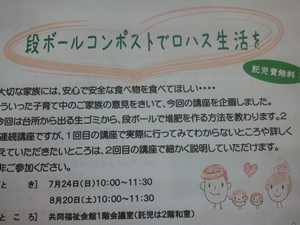 段ボールコンポストでロハス生活を
託児費無料
大切な家族には、安心で安全な食べ物を食べてほしい‥‥
ういった子育て中のご家族の意見をきいて、今回の講座を企画しました。
今回は台所から出る生ゴミから、段ボールで堆肥を作る方法を教わります。2
連続講座ですが、1回目の講座で実際に行ってみてわからないところや詳しく
えていただきたいところは、2回目の講座で細かく説明していただけます。
非ご参加ください。
と き】 7月24日(日)10:00~11:30
8月20日(土)10:00~11:30
ところ】 共同福祉会館1階会議室(託児は2階和室)